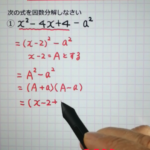 次の式を因数分解しなさい
① x²-4x+4-a²
=(x-2)²-a²
x-2=Aとする
=A²-a²
=(A+a)(A-a)
=(x-2+